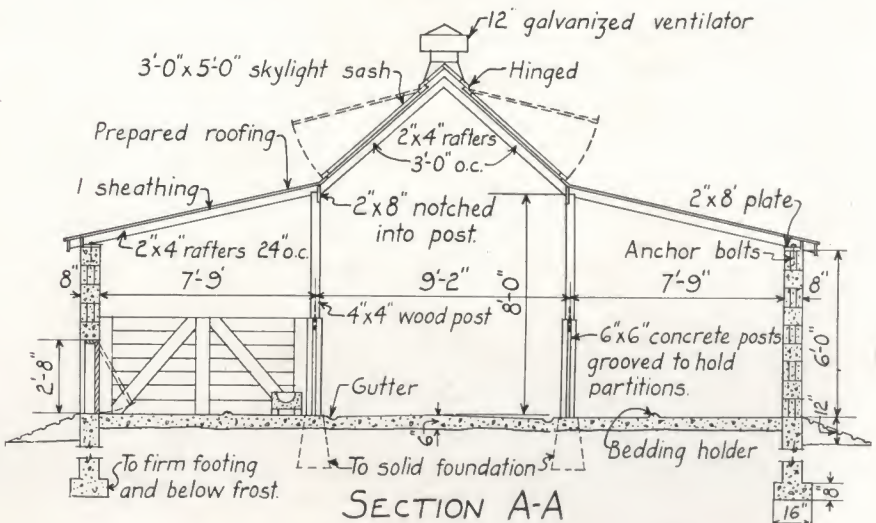 12" galvanized ventilator
3'-0"x5'-0" skylight sash
Hinged
Prepared roofing
2"x4" rafters
3'-0" o.c.
1 sheathing
2"x8" notched
into post.
2"x8' plate
2"x4" rafters 24" o.c.
Anchor bolts
8"
7'-9'
9'-2"
7'-9"
8"
8'-0"
4"x4" wood post
6"x6" concrete posts
grooved to hold
partitions.
6'-0"
2'-8"
Gutter
6"
12"
Bedding holder
To firm footing
and below frost.
To solid foundation
8"
16"
SECTION A-A